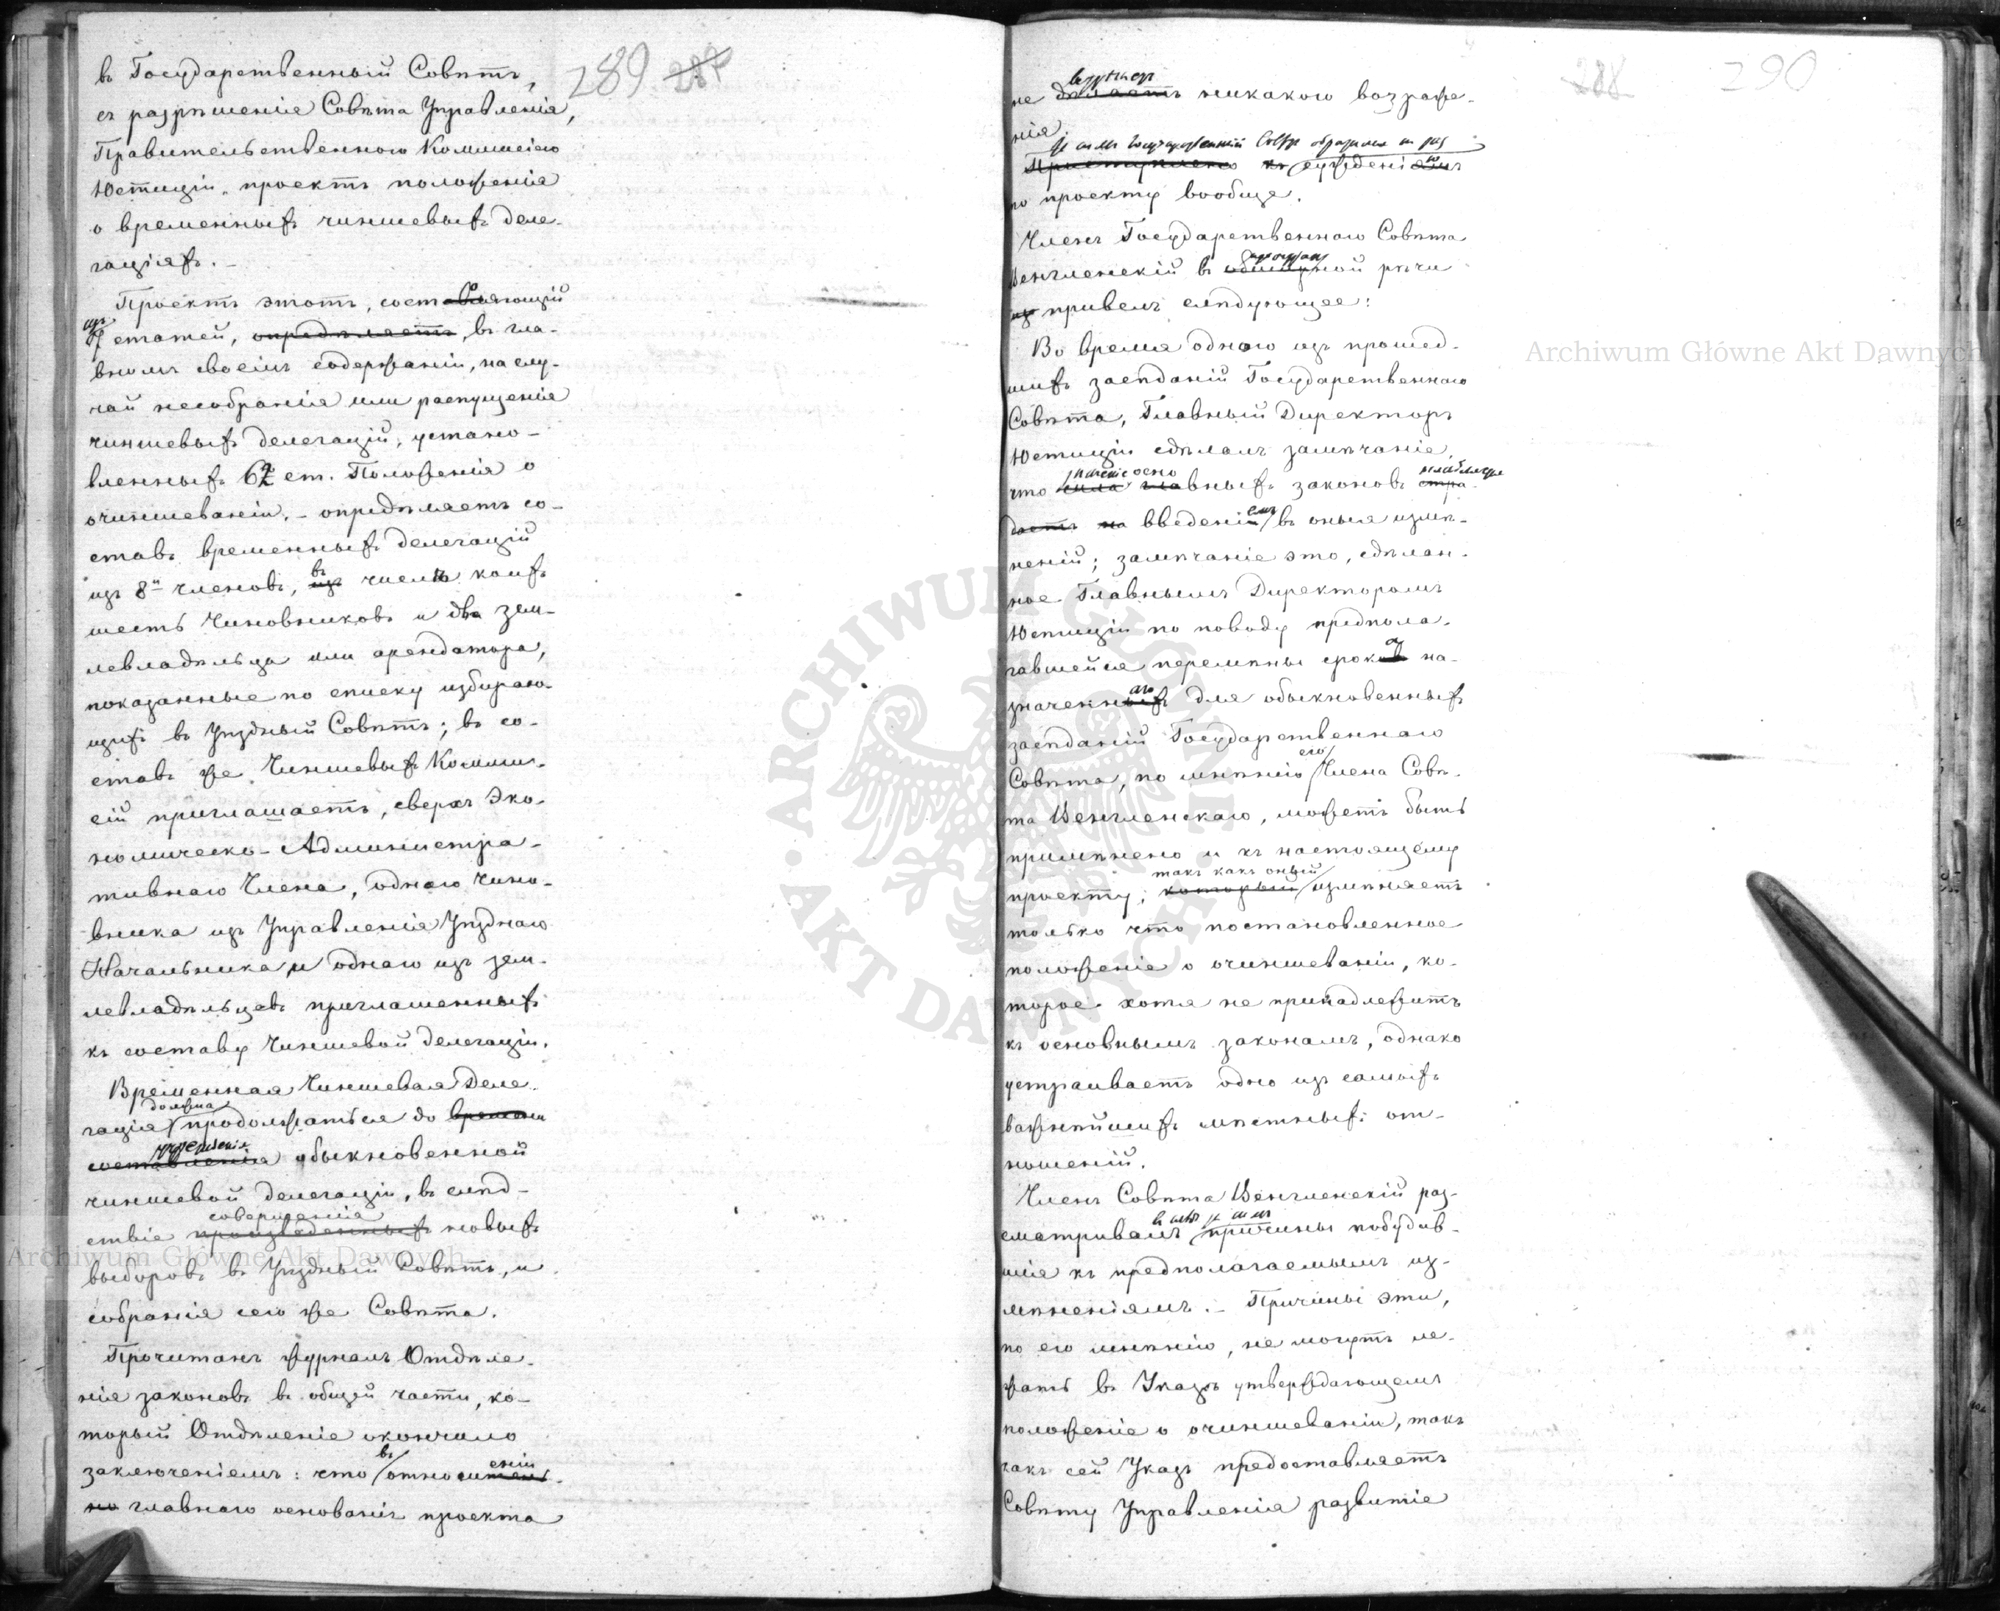 289 287
въ Государственный Совѣтъ,
съ разрѣшенія Совѣта Управленія,
Правительственною Коммисіею
Юстиціи, проектъ положенія
о временныхъ чиншевыхъ деле-
гаціяхъ. –
Проектъ этотъ, составляющій
изъ статей, опредѣляетъ, въ гла-
вномъ своемъ содержаніи, на слу-
чай несобранія или распущенія
чиншевыхъ делегацій, устано-
вленныхъ 62 ст. Положенія о
очиншеваніи, – опредѣляетъ со-
ставъ временныхъ делегацій
изъ 8и членовъ, въ изъ числѣ коихъ
шесть Чиновниковъ и два зем-
левладѣльца или арендатора,
показанные по списку избираю-
щихъ въ Уѣздный Совѣтъ; въ со-
ставъ же Чиншевыхъ Коммис-
сій приглашаетъ, сверхъ Эко-
номическо-Администра-
тивнаго Члена, однаго Чино-
вника изъ Управленія Уѣзднаго
Начальника, и однаго изъ зем-
левладѣльцевъ приглашенныхъ
къ составу Чиншевой делегаціи.
Временная Чиншевая Деле-
должна
гація продолжаться до времени
учрежденія
составленія обыкновенной
чиншевой делегаціи, въ слѣд-
совершенія
ствіе произведенныхъ новыхъ
выборовъ въ Уѣздный Совѣтъ, и
собранія сего же Совѣта.
Прочитанъ журналъ Отдѣле-
нія законовъ въ общей части, ко-
торый Отдѣленіе окончило
въ еніи
заключеніемъ: что относитель-
но главнаго основанія проекта
288 290
не дѣлаетъ никакого возраже-
нія.
же чемъ Государственный Совѣтъ обратился къ
Приступлено къ сужденіямъ
по проекту вообще.
Членъ Государственнаго Совѣта
Венгленскій въ обширной рѣчи
привелъ слѣдующее:
Во время одного изъ прошед-
шихъ засѣданій Государственнаго
Совѣта, Главный Директоръ
Юстиціи сдѣлалъ замѣчаніе,
значеніе осно
что сила главныхъ законовъ стра-
даетъ на введеніемъ въ оныя измѣ-
неній; замѣчаніе это, сдѣлан-
ное Главнымъ Директоромъ
Юстиціи по поводу предпола-
гавшейся перемѣны сроковъ на-
значенныхъ для обыкновенныхъ
засѣданій Государственнаго
его
Совѣта, по мнѣнію Члена Совѣ-
та Венгленскаго, можетъ быть
примѣнено и къ настоящему
такъ какъ оный
проекту; который измѣняетъ
только что постановленное
положеніе о очиншеваніи, ко-
торое хотя не принадлежитъ
къ основнымъ законамъ, однако
устраиваетъ одно изъ самыхъ
важнѣйшихъ мѣстныхъ от-
ношеній.
Членъ Совѣта Венгленскій раз-
сматривалъ причины побудив-
шія къ предполагаемымъ из-
мѣненіямъ. – Причины эти,
по его мнѣнію, не могутъ ле-
жать въ Указѣ утверждающемъ
положеніе о очиншеваніи, такъ
какъ сей Указъ предоставляетъ
Совѣту Управленія развитіе
Archiwum Główne Akt Dawnych
Archiwum Główne Akt Dawnych
ARCHIWUM GŁÓWNE AKT DAWNYCH